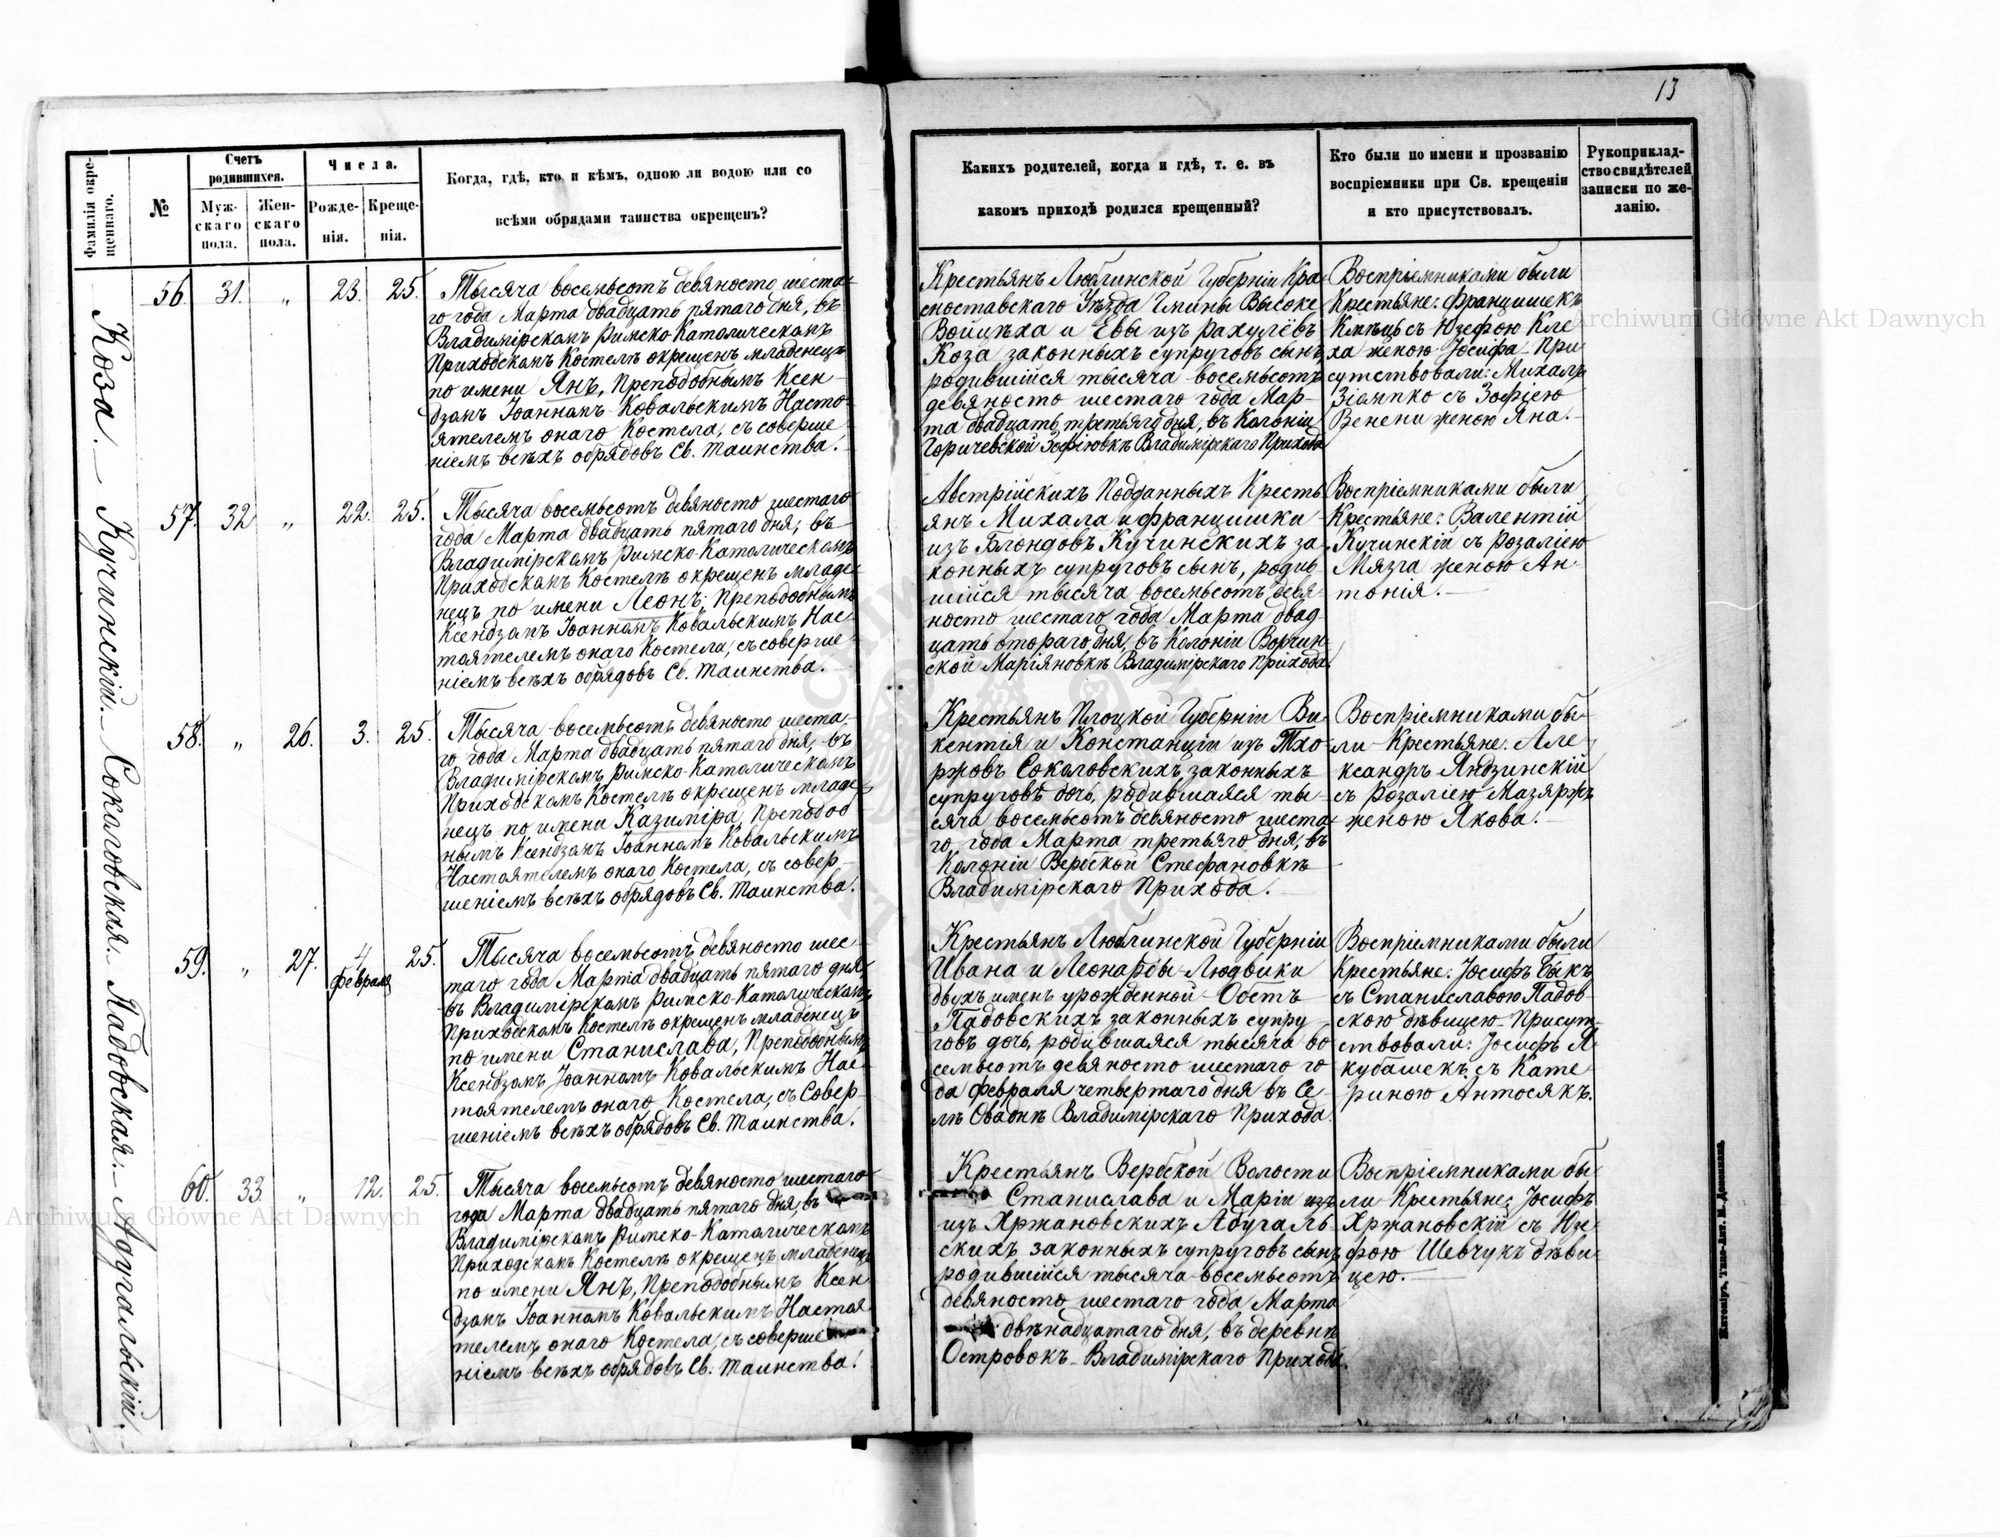 13
Фамилія окрещеннаго.
№
Счетъ родившихся.
Мужскаго пола.
Женскаго пола.
Числа.
Рожденія.
Крещенія.
Когда, гдѣ, кто и кѣмъ, одною ли водою или со
всѣми обрядами таинства окрещенъ?
Какихъ родителей, когда и гдѣ, т. е. въ
какомъ приходѣ родился крещенный?
Кто были по имени и прозванію
воспріемники при Св. крещеніи
и кто присутствовалъ.
Рукоприклад-
ство свидѣтелей
записки по же-
ланію.
Коза.
56. 31. „ 23. 25.
Тысяча восемьсотъ девяносто шеста-
го года Марта двадцать пятаго дня, въ
Владимірскомъ Римско-Католическомъ
Приходскомъ Костелѣ окрещенъ младенецъ
по имени Янъ, Преподобнымъ Ксен-
дзомъ Іоанномъ Ковальскимъ Насто-
ятелемъ онаго Костела, съ соверше-
ніемъ всѣхъ обрядовъ Св. Таинства.
Крестьянъ Люблинской Губерніи Кра-
сноставскаго Уѣзда Гмины Высоке
Войцѣха и Евы изъ Рахулёвъ
Коза законныхъ супруговъ сынъ
родившійся тысяча восемьсотъ
девяносто шестаго года Мар-
та двадцать третьяго дня, въ Колоніи
Горичевской Зофіювкѣ Владимірскаго Прихода
Воспріемниками были
Крестьяне: Францишекъ
Кмѣць съ Юзефою Кле-
ха женою Іосифа. При-
сутствовали: Михалъ
Зіомпко съ Зофіею
Венени женою Яна.
Кучинскій.
57. 32 „ 22. 25.
Тысяча восемьсотъ девяносто шестаго
года Марта двадцать пятаго дня, въ
Владимірскомъ Римско-Католическомъ
Приходскомъ Костелѣ окрещенъ младе-
нецъ по имени Леонъ, Преподобнымъ
Ксендзомъ Іоанномъ Ковальскимъ Нас-
тоятелемъ онаго Костела, съ соверше-
ніемъ всѣхъ обрядовъ Св. Таинства.
Австрійскихъ Подданныхъ Кресть
янъ Михала и Францишки
изъ Блондовъ Кучинскихъ за-
конныхъ супруговъ сынъ, родив
шійся тысяча восемьсотъ девя-
носто шестаго года Марта двад-
цать втораго дня, въ Колоніи Ворчин-
ской Маріяновкѣ Владимірскаго Прихода.
Воспріемниками были
Крестьяне: Валентій
Кучинскій съ Розаліею
Мязга женою Ан-
тонія.
Соколовская.
58. „ 26. 3. 25.
Тысяча восемьсотъ девяносто шеста-
го года Марта двадцать пятаго дня, въ
Владимірскомъ Римско-Католическомъ
Приходскомъ Костелѣ окрещенъ младе-
нецъ по имени Казиміра, Преподоб
нымъ Ксендзомъ Іоанномъ Ковальскимъ
Настоятелемъ онаго Костела, съ совер-
шеніемъ всѣхъ обрядовъ Св. Таинства.
Крестьянъ Плоцкой Губерніи Ви-
кентія и Констанціи изъ Тхо-
ржовъ Соколовскихъ законныхъ
супруговъ дочь, родившаяся ты-
сяча восемьсотъ девяносто шеста-
го года Марта третьяго дня, въ
Колоніи Вербской Стефановкѣ
Владимірскаго Прихода.
Воспріемниками бы-
ли Крестьяне: Але-
ксандръ Яндзинскій
съ Розаліею Мазяржъ
женою Якова.
Падовская.
59. „ 27. 4 Февраля 25.
Тысяча восемьсотъ девяносто шес-
таго года Марта двадцать пятаго дня
въ Владимірскомъ Римско-Католическомъ
Приходскомъ Костелѣ окрещенъ младенецъ
по имени Станислава, Преподобнымъ
Ксендзомъ Іоанномъ Ковальскимъ Нас-
тоятелемъ онаго Костела, съ Совер-
шеніемъ всѣхъ обрядовъ Св. Таинства.
Крестьянъ Люблинской Губерніи
Ивана и Леонарды-Людвики
двухъ именъ урожденной Обстъ
Падовскихъ законныхъ супру-
говъ дочь, родившаяся тысяча во
семьсотъ девяносто шестаго го
да Февраля четвертаго дня въ Се-
лѣ Оваднѣ Владимірскаго Прихода.
Воспріемниками были
Крестьяне: Іосифъ Быкъ
съ Станиславою Падов-
скою дѣвицею. Присут-
ствовали: Іосифъ Я-
кубашекъ съ Кате
риною Антосякъ.
Адугальскій.
60. 33. „ 12. 25.
Тысяча восемьсотъ девяносто шестаго
года Марта двадцать пятаго дня, въ
Владимірскомъ Римско-Католическомъ
Приходскомъ Костелѣ окрещенъ младенецъ
по имени Янъ, Преподобнымъ Ксен
дзомъ Іоанномъ Ковальскимъ Настоя
телемъ онаго Костела, съ соверше
ніемъ всѣхъ обрядовъ Св. Таинства.
Крестьянъ Вербской Волости
Станислава и Маріи изъ
изъ Хржановскихъ Адугаль-
скихъ законныхъ супруговъ сынъ
родившійся тысяча восемьсотъ
девяносто шестаго года Марта
двѣнадцатаго дня, въ деревнѣ
Островокъ Владимірскаго Прихода.
Воспріемниками бы-
ли Крестьяне: Іосифъ
Хржановскій съ Юзе-
фою Шевчукъ дѣви-
цею.
Житоміръ, Типо-Лит.
Archiwum Główne Akt Dawnych
Archiwum Główne Akt Dawnych